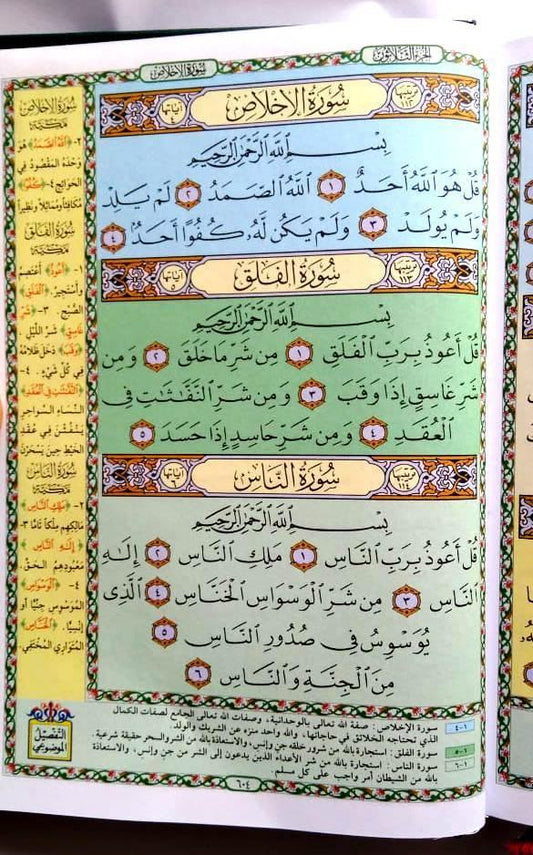 الجزء الثلاثون
سورة الإخلاص
ترتيبها ١١٢
سُورَةُ الإِخْلَاصِ
آياتها ٤
بِسْمِ اللَّهِ الرَّحْمَٰنِ الرَّحِيمِ
قُلْ هُوَ اللَّهُ أَحَدٌ ١ اللَّهُ الصَّمَدُ ٢ لَمْ يَلِدْ
وَلَمْ يُولَدْ ٣ وَلَمْ يَكُن لَّهُ كُفُوًا أَحَدٌ ٤
ترتيبها ١١٣
سُورَةُ الْفَلَقِ
آياتها ٥
بِسْمِ اللَّهِ الرَّحْمَٰنِ الرَّحِيمِ
قُلْ أَعُوذُ بِرَبِّ الْفَلَقِ ١ مِن شَرِّ مَا خَلَقَ ٢ وَمِن
شَرِّ غَاسِقٍ إِذَا وَقَبَ ٣ وَمِن شَرِّ النَّفَّاثَاتِ فِي
الْعُقَدِ ٤ وَمِن شَرِّ حَاسِدٍ إِذَا حَسَدَ ٥
ترتيبها ١١٤
سُورَةُ النَّاسِ
آياتها ٦
بِسْمِ اللَّهِ الرَّحْمَٰنِ الرَّحِيمِ
قُلْ أَعُوذُ بِرَبِّ النَّاسِ ١ مَلِكِ النَّاسِ ٢ إِلَٰهِ
النَّاسِ ٣ مِن شَرِّ الْوَسْوَاسِ الْخَنَّاسِ ٤ الَّذِي
يُوَسْوِسُ فِي صُدُورِ النَّاسِ ٥
مِنَ الْجِنَّةِ وَالنَّاسِ ٦
سورة الإخلاص
مكية
٢- ﴿اللَّهُ الصَّمَدُ﴾ هُوَ
وَحْدَهُ المَقْصُودُ فِي
الحَوَائِجِ ٤- ﴿كُفُوًا﴾
مُكَافِئًا وَمُمَاثِلًا وَنَظِيرًا
سورة الفلق
مكية
١- ﴿أَعُوذُ﴾ أَعْتَصِمُ
وَأَسْتَجِيرُ. ﴿الْفَلَقِ﴾
الصُّبْحِ. ٣- ﴿شَرِّ
غَاسِقٍ﴾ شَرِّ اللَّيْلِ
﴿وَقَبَ﴾ دَخَلَ ظَلَامُهُ
فِي كُلِّ شَيْءٍ. ٤-
﴿النَّفَّاثَاتِ فِي الْعُقَدِ﴾
النِّسَاءِ السَّوَاحِرِ
يَنْفُثْنَ فِي عُقَدِ
الخَيْطِ حِينَ يَسْحَرْنَ
سورة الناس
مكية
٢- ﴿مَلِكِ النَّاسِ﴾
مَالِكِهِم مِلْكًا تَامًّا ٣-
﴿إِلَٰهِ النَّاسِ﴾
مَعْبُودِهِم الحَقِّ.
٤- ﴿الْوَسْوَاسِ﴾
المُوَسْوِسِ جِنِّيًّا أَو
إِنْسِيًّا. ﴿الْخَنَّاسِ﴾
المُتَوَارِي المُخْتَفِي.
التفصيل
الموضوعي
١-٤ سورة الإخلاص: صفة لله تعالى بالوحدانية، وصفات الله تعالى الجامع لصفات الكمال
الذي تحتاجه الخلائق في حاجاتها، والله واحد منزه عن الشريك والولد.
١-٥ سورة الفلق: استجارة بالله من شرور خلقه جن وإنس، والاستعاذة بالله من الشرور والسحر حقيقة شرعية.
١-٦ سورة الناس: استجارة بالله من شر الأعداء الذين يدعون إلى الشر من جن وإنس، والاستعاذة
بالله من الشيطان أمر واجب على كل مسلم.
٦٠٤